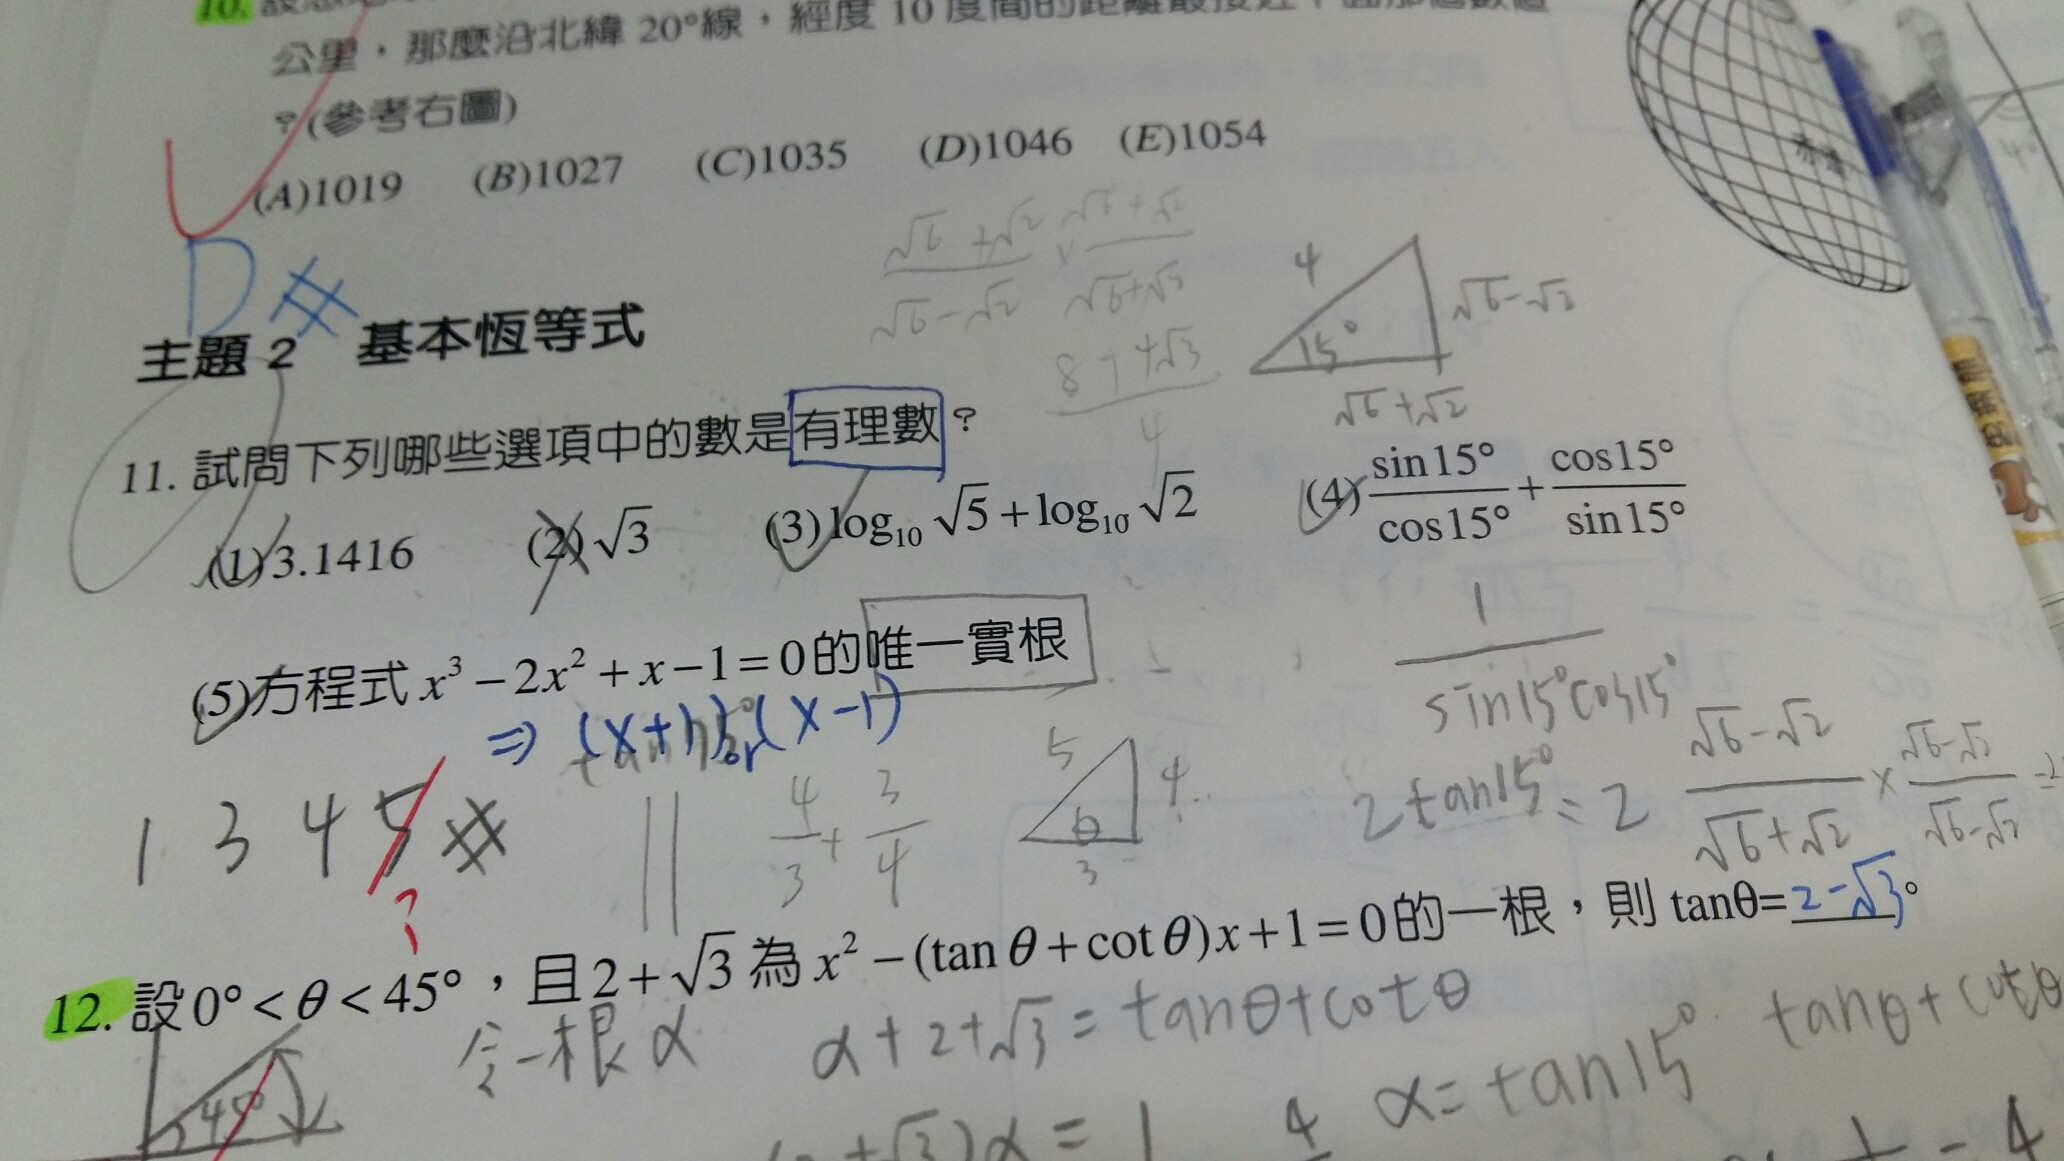 10. 設
公里，那麼沿北緯20°線，經度10度間的距離最接近下面那個數值
？(參考右圖)
(A)1019 (B)1027 (C)1035 (D)1046 (E)1054
D
√6+√2/√6-√2 × √6+√2/√6+√2
4 √6-√2
15°
√6+√2
主題2 基本恆等式
11. 試問下列哪些選項中的數是有理數？
(1)3.1416 (2)√3 (3)log₁₀√5+log₁₀√2 (4)sin15°/cos15°+cos15°/sin15°
1/sin15°cos15°
(5)方程式x³-2x²+x-1=0的唯一實根
⇒ (x+1) or (x-1)
1 3 4 5
?
4/3+3/4
5 4 θ 3
2tan15°=2 √6-√2/√6+√2 × √6-√2/√6-√2
12. 設0°<θ<45°，且2+√3為x²-(tanθ+cotθ)x+1=0的一根，則tanθ=2-√3。
令一根α α+2+√3=tanθ+cotθ
45°
α=tan15° tanθ+cotθ
+√3)α=1